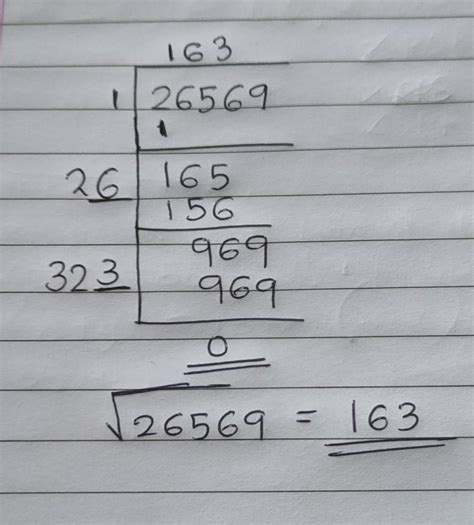 163
1 26569
1
26 165
156
969
323 969
0
√26569 = 163